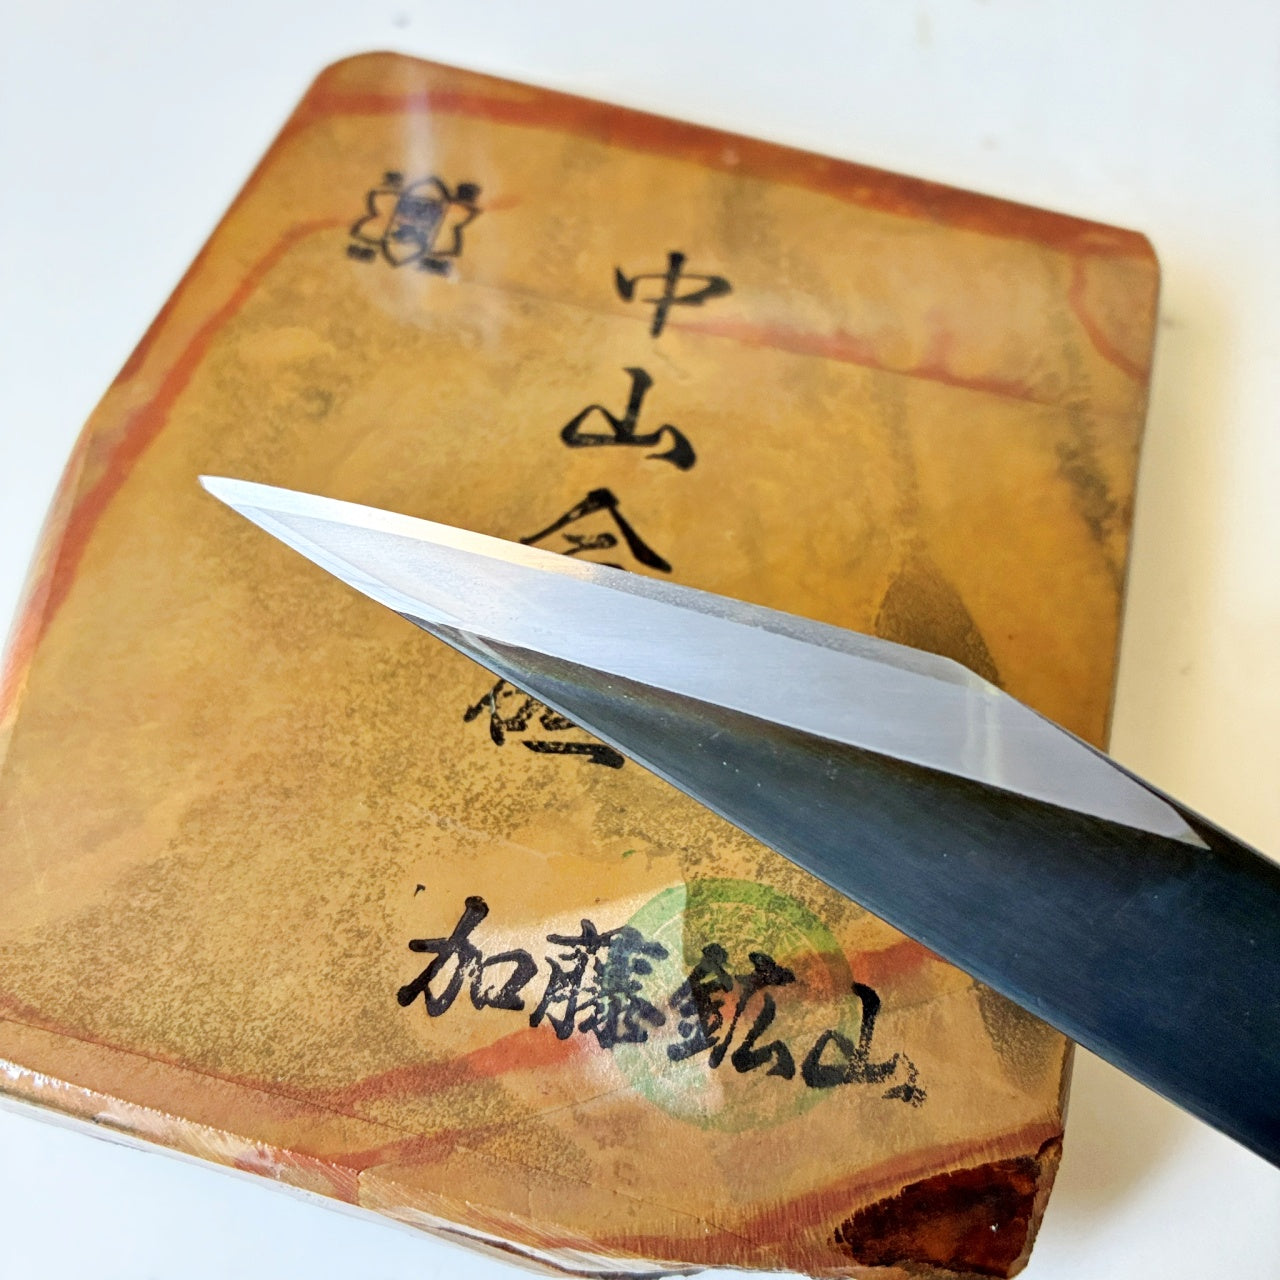 中山
加藤鉱山